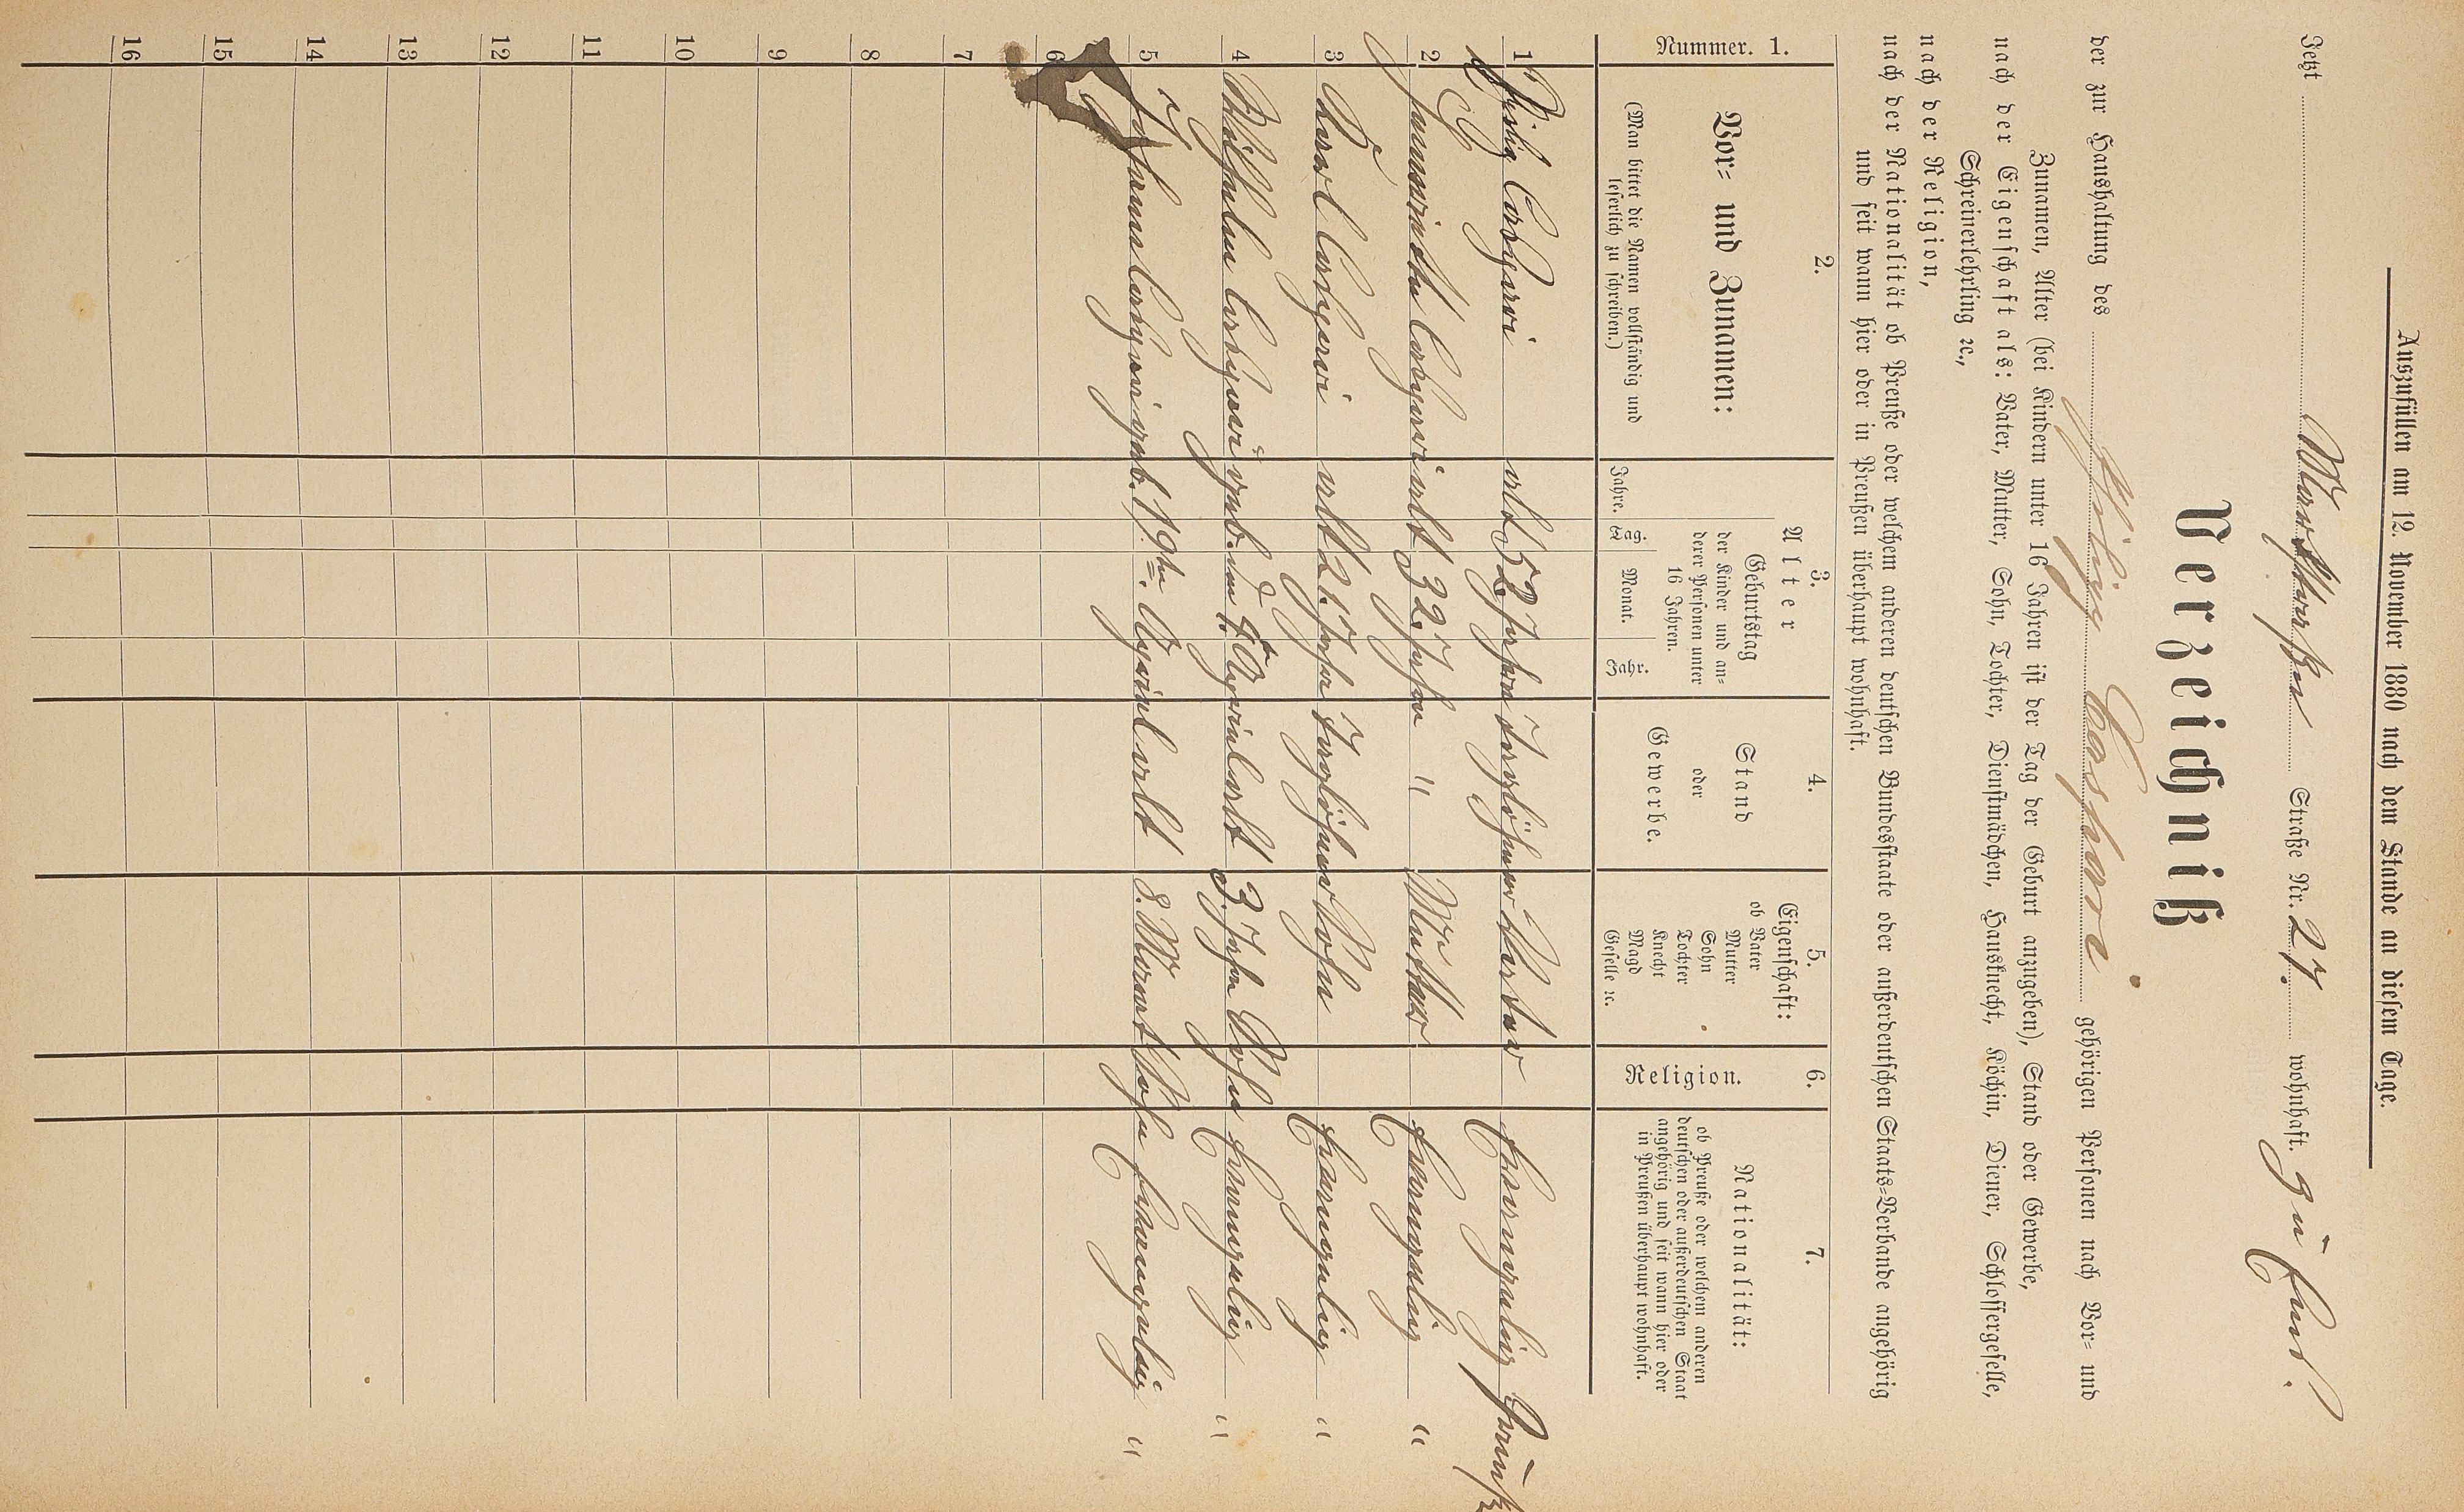 Auszufüllen am 12. November 1880 nach dem Stande an diesem Tage.
Jetzt Marktstraße Straße Nr. 27. wohnhaft. zu Ems.
Verzeichniß
der zur Haushaltung des Philip Caspari gehörigen Personen nach Vor- und
Zunamen, Alter (bei Kindern unter 16 Jahren ist der Tag der Geburt anzugeben), Stand oder Gewerbe,
nach der Eigenschaft als: Vater, Mutter, Sohn, Tochter, Dienstmädchen, Hausknecht, Köchin, Diener, Schlossergeselle,
Schreinerlehrling ꝛc.,
nach der Religion,
nach der Nationalität ob Preuße oder welchem anderen deutschen Bundesstaate oder außerdeutschen Staats-Verbande angehörig
und seit wann hier oder in Preußen überhaupt wohnhaft.
Nummer. 1.
2.
Vor- und Zunamen:
(Man bittet die Namen vollständig und
leserlich zu schreiben.)
3.
Alter
Geburtstag
der Kinder und an-
derer Personen unter
16 Jahren.
Jahre. Tag. Monat. Jahr.
4.
Stand
oder
Gewerbe.
5.
Eigenschaft:
ob Vater
Mutter
Sohn
Tochter
Knecht
Magd
Geselle ꝛc.
6.
Religion.
7.
Nationalität:
ob Preuße oder welchem anderen
deutschen oder außerdeutschen Staat
angehörig und seit wann hier oder
in Preußen überhaupt wohnhaft.
1 Philip Caspari alt 52 Jahre Taglöhner Vater Evangelig
2 Caspari alt 32 Jahre " Mutter Evangelig "
3 Karl Caspari alt 21 Jahr Taglöhner Sohn Evangelig "
4 Wilhelm Caspari geb. den April alt 3 Jahr Sohn Evangelig "
5 Johann Caspari geb. 19ten April alt 8. Monat Sohn Evangelig "
6
7
8
9
10
11
12
13
14
15
16